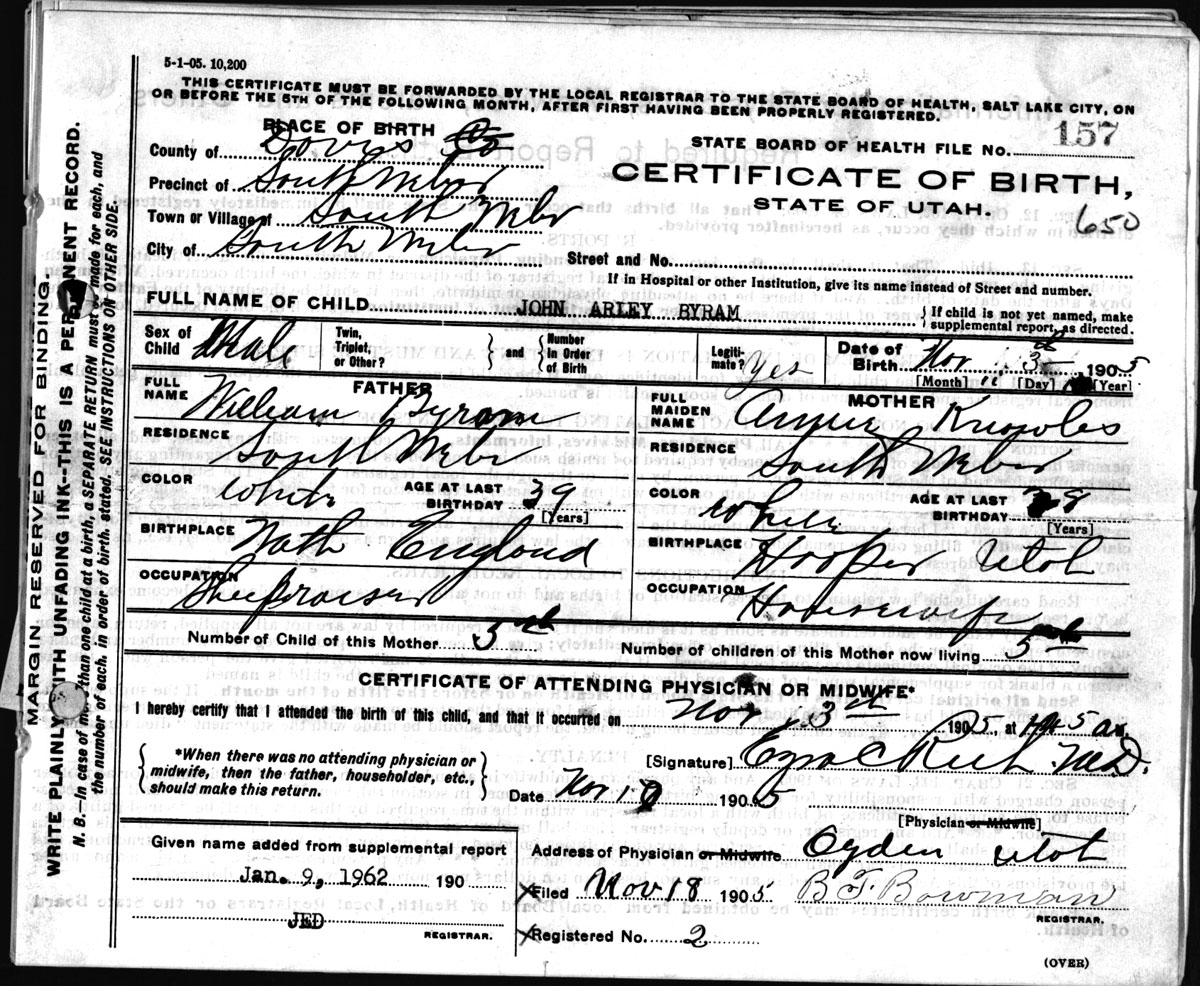 5-1-05. 10,200
THIS CERTIFICATE MUST BE FORWARDED BY THE LOCAL REGISTRAR TO THE STATE BOARD OF HEALTH, SALT LAKE CITY, ON
OR BEFORE THE 5TH OF THE FOLLOWING MONTH, AFTER FIRST HAVING BEEN PROPERLY REGISTERED.
PLACE OF BIRTH
STATE BOARD OF HEALTH FILE NO. 157
County of Davis Co
CERTIFICATE OF BIRTH,
Precinct of South Weber
STATE OF UTAH.
650
Town or Village of South Weber
City of South Weber
Street and No.
If in Hospital or other Institution, give its name instead of Street and number.
FULL NAME OF CHILD JOHN ARLEY BYRAM
If child is not yet named, make
supplemental report, as directed.
Sex of
Child Male
Twin,
Triplet,
or Other?
and
Number
in Order
of Birth
Legiti-
mate? Yes
Date of
Birth Nov 3d 1905
[Month] [Day] [Year]
FATHER
FULL
NAME William Byram
RESIDENCE South Weber
COLOR White
AGE AT LAST
BIRTHDAY 39
[Years]
BIRTHPLACE Noth England
OCCUPATION Sheepraiser
MOTHER
FULL
MAIDEN
NAME Annie Knowles
RESIDENCE South Weber
COLOR White
AGE AT LAST
BIRTHDAY
[Years]
BIRTHPLACE Hooper Utah
OCCUPATION Housewife
Number of Child of this Mother 5th
Number of children of this Mother now living 5
CERTIFICATE OF ATTENDING PHYSICIAN OR MIDWIFE*
I hereby certify that I attended the birth of this child, and that it occurred on Nov, 3th 1905, at
*When there was no attending physician or
midwife, then the father, householder, etc.,
should make this return.
[Signature] Ezra C Rich M.D.
Date Nov 1905
[Physician or Midwife]
Given name added from supplemental report
Jan. 9, 1962 190
JED
REGISTRAR.
Address of Physician or Midwife Ogden Utah
Filed Nov 18 1905 B F Bowman
REGISTRAR.
Registered No. 2
(OVER)
MARGIN RESERVED FOR BINDING.
WRITE PLAINLY WITH UNFADING INK--THIS IS A PERMANENT RECORD.
N. B.--In case of more than one child at a birth, a SEPARATE RETURN must be made for each, and
the number of each, in order of birth, stated. SEE INSTRUCTIONS ON OTHER SIDE.